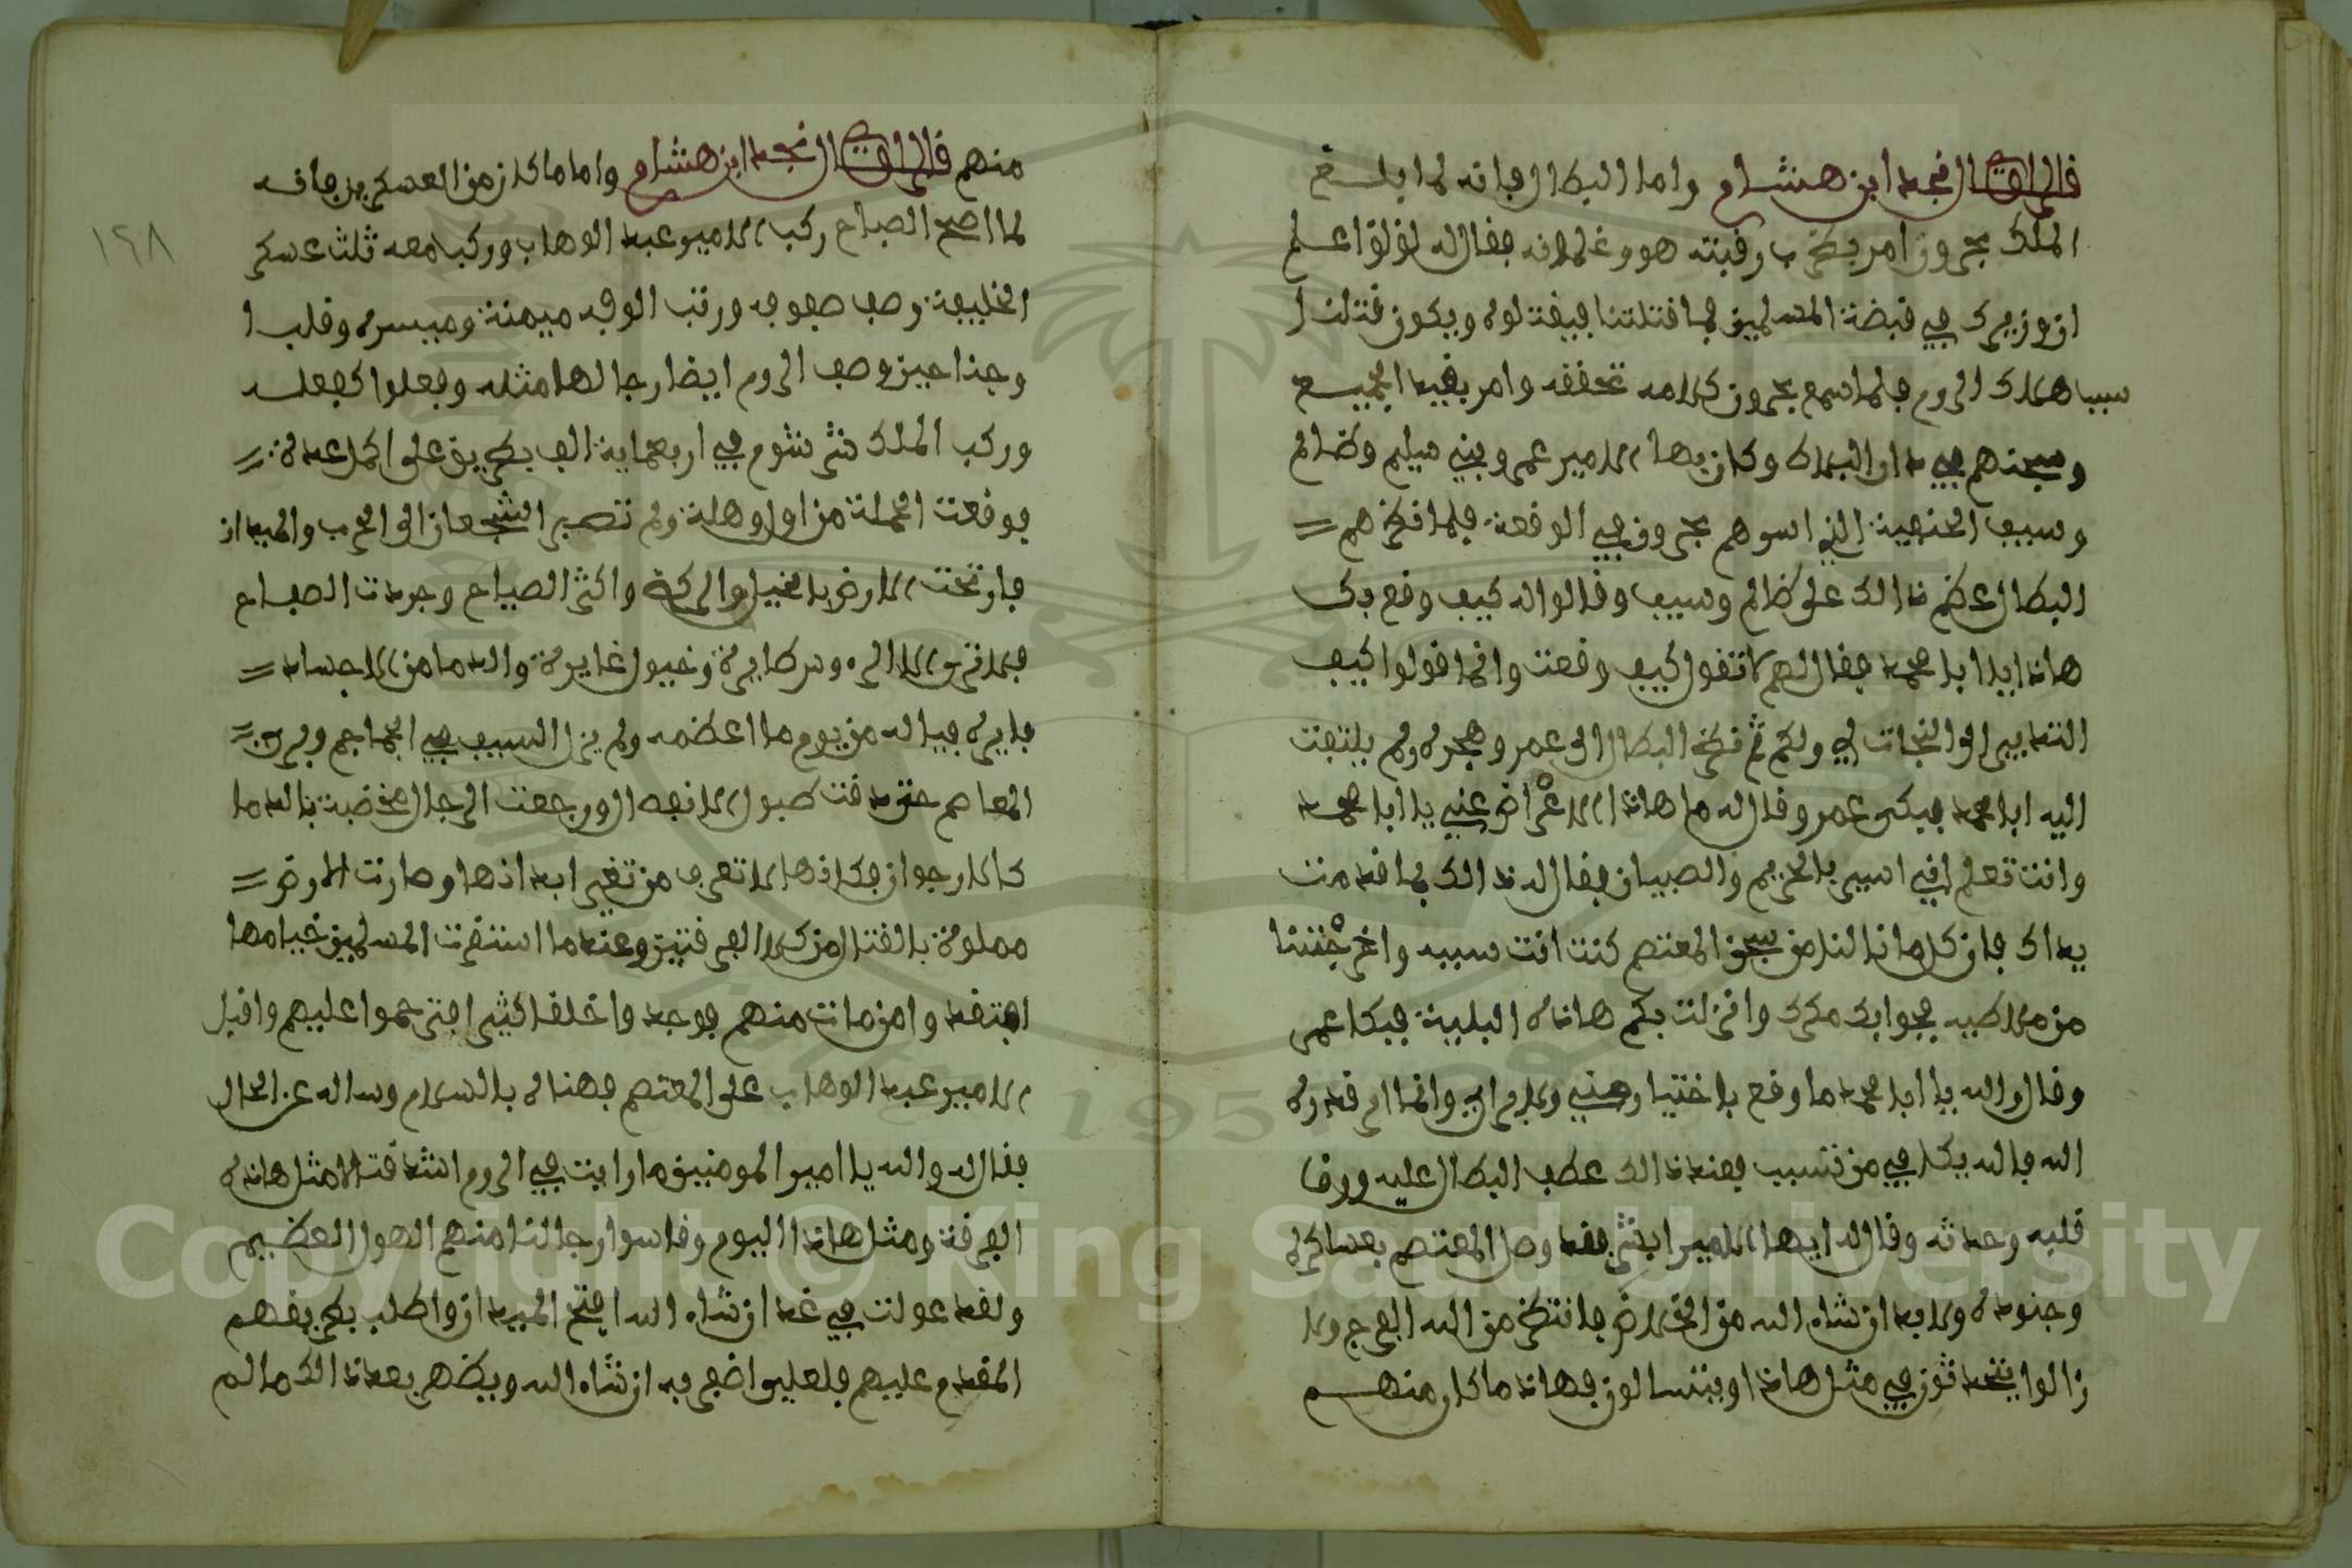 قال الراوى نجد ابن هشام واما البطال فانه لما بلغ
الملك بحرون امر بضرب رقبته هو وغلمانه فقال له لؤلؤ اعلم
ان وزيرك في قبضة المسلمين فما قتلتنا فيقتلوه ويكون قتلنا
سبب هلاك الروم فلما سمع بحرون كلامه تحققه وامر بقيد الجميع
وسجنهم في دار البلاك وكان بها الامير عمر وبني سليم وظالم
وسيف الحنفية الذي اسرهم بحرون في الوقعة فلما نظرهم =
البطال عظم ذالك على ظالم وسيف وقالوا له كيف وقع بك
هاذا يا ابا محمد فقال لهم لا تقول كيف وقعت وانما قولوا كيف
التدابير الى النجات لي ولكم ثم نظر البطال الى عمر وهجره ولم يلتفت
اليه ابا محمد فبكى عمر وقال له ما هاذا الاعراض عني يا ابا محمد
وانت تعلم اني اسير بالحريم والصبيان فقال له ذالك بما قدمت
يداك فان كل ما نالنا من سجن المعتصم كنت انت سببه واخرجتنا
من ملاطيه بجوابك مكرك وانزلت بكم هاذه البلية فبكا عمر
وقال والله يا ابا محمد ما وقع باختيار مني ولا برايي وانما امر قدره
الله فالله يكافي من تسبب فعند ذالك عطف البطال عليه ورق
قلبه وحدثه وقال له ايها الامير ابشر فقد وصل المعتصم بعساكره
وجنوده ولا بد ان شاء الله من الخلاص فانتظر من الله الفرج ولا
زالوا يتحدثون في مثل هاذا ويتسالون فهاذا ما كان منهم
منهم قال الراوى نجد ابن هشام واما ما كان من العسكرين فانه
لما اصبح الصباح ركب الامير عبد الوهاب وركب معه ثلث عسكر
الخليفة وصف صفوفه ورتب الوفه ميمنة وميسره وقلبا
وجناحين وصف الروم ايضا رجالها مثله وفعلوا كفعله
وركب الملك في اربعماية الف بطريق على اكمل عدة =
فوقعت الحملة من اول وهلة ولم تصبر الشجعان الى الحرب والميدان
فارتجت الارض بالخيل والركبة واكثر الصياح وجردت الصفاح
فلا ترى الا الره وسر طايرة وخيول غايرة والدما من الاجساد =
فايرة فياله من يوم ما اعظمه ولم يزل السيف في الجماجم وفرى =
المعاصم حتى دقت طبول الانفصال ورجعت الرجال مخضبة بالدما
كالارجوان فكانها لا تعرف من تغير ابدانها وصارت الارض =
مملوة بالقتال من كلا الفرقتين وعندما استقرت المسلمين خيامها
افتقدوا من مات منهم فوجدوا خلقا كثيرا فترحموا عليهم واقبل
الامير عبد الوهاب على المعتصم فهناه بالسلام وساله عن الحال
فقال له والله يا امير المومنين ما رايت في الروم اشد قتالا مثل هاذه
الفرقة ومثل هاذا اليوم وقاسوا رجالنا منهم الهول العظيم
ولقد عولت في غد ان شاء الله افتح الميدان واطلب بطريقهم
المقدم عليهم فلعلي اضفر به ان شاء الله ويظهر بعد ذالك ما لم
١٢٨
Copyright © King Saud University
1957